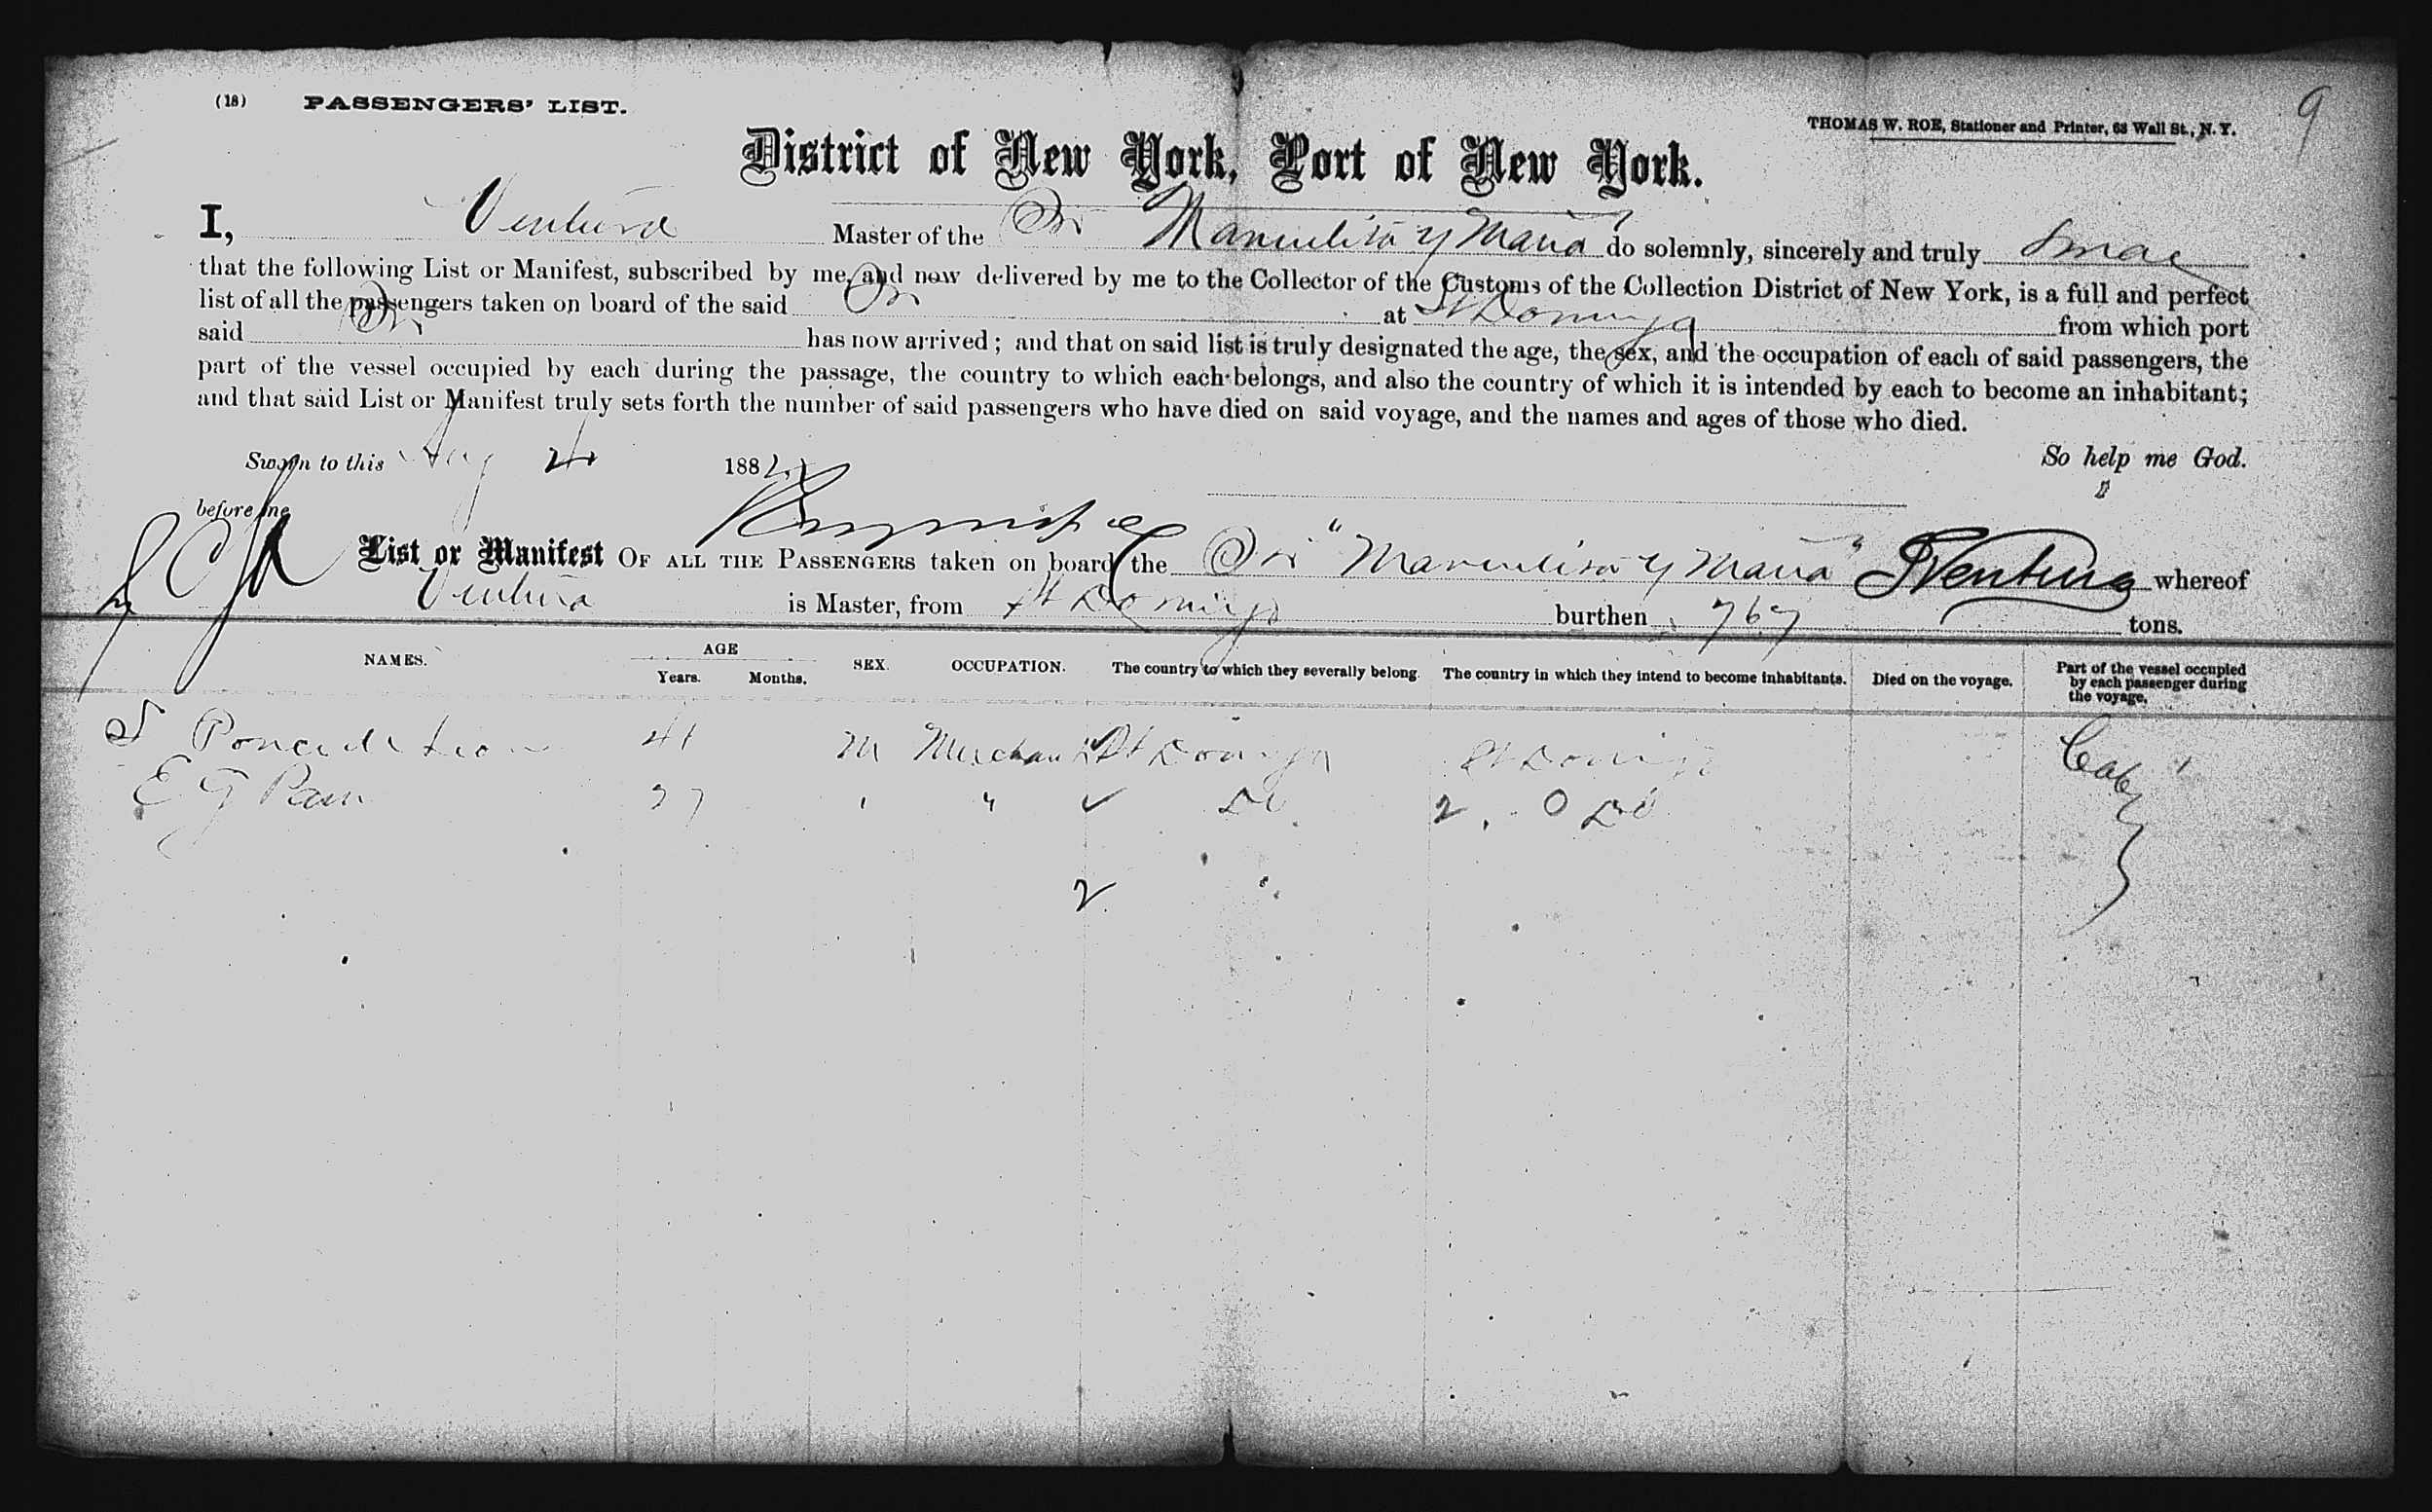 (18) PASSENGERS' LIST.
9
THOMAS W. ROE, Stationer and Printer, 63 Wall St., N. Y.
District of New York, Port of New York.
I, Ventura Master of the Manuelita y Maria do solemnly, sincerely and truly
that the following List or Manifest, subscribed by me, and now delivered by me to the Collector of the Customs of the Collection District of New York, is a full and perfect
list of all the passengers taken on board of the said at St Domingo from which port
said has now arrived; and that on said list is truly designated the age, the sex, and the occupation of each of said passengers, the
part of the vessel occupied by each during the passage, the country to which each belongs, and also the country of which it is intended by each to become an inhabitant;
and that said List or Manifest truly sets forth the number of said passengers who have died on said voyage, and the names and ages of those who died.
Sworn to this Aug 188 So help me God.
before me
List or Manifest OF ALL THE PASSENGERS taken on board the "Manuelita y Maria" Ventura whereof
Ventura is Master, from St Domingo burthen 767 tons.
NAMES. AGE Years. Months. SEX. OCCUPATION. The country to which they severally belong. The country in which they intend to become inhabitants. Died on the voyage. Part of the vessel occupied by each passenger during the voyage.
Ponce de Leon 41 M Merchant St Domingo St Domingo Cabin
E G " Do 2 Do
2